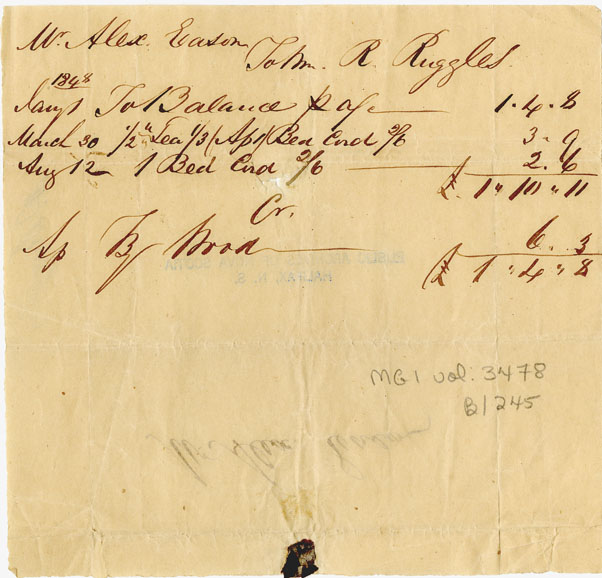 Mr. Alex. Eason
To Wm. R. Ruggles.
1848
Jany 1 To Balance pr a/c 1. 4. 8
March 30 1/2 lb Tea 1/3 (Ap 1) Bed Cord 2/6 3. 9
Aug 12 1 Bed Cord 2/6 2. 6
£ 1 " 10 " 11
Cr.
Ap By Wood 6. 3
£ 1 " 4 " 8
PUBLIC ARCHIVES OF NOVA SCOTIA
HALIFAX, N. S.
MG1 vol. 3478
B1245
Mr Alex Eason